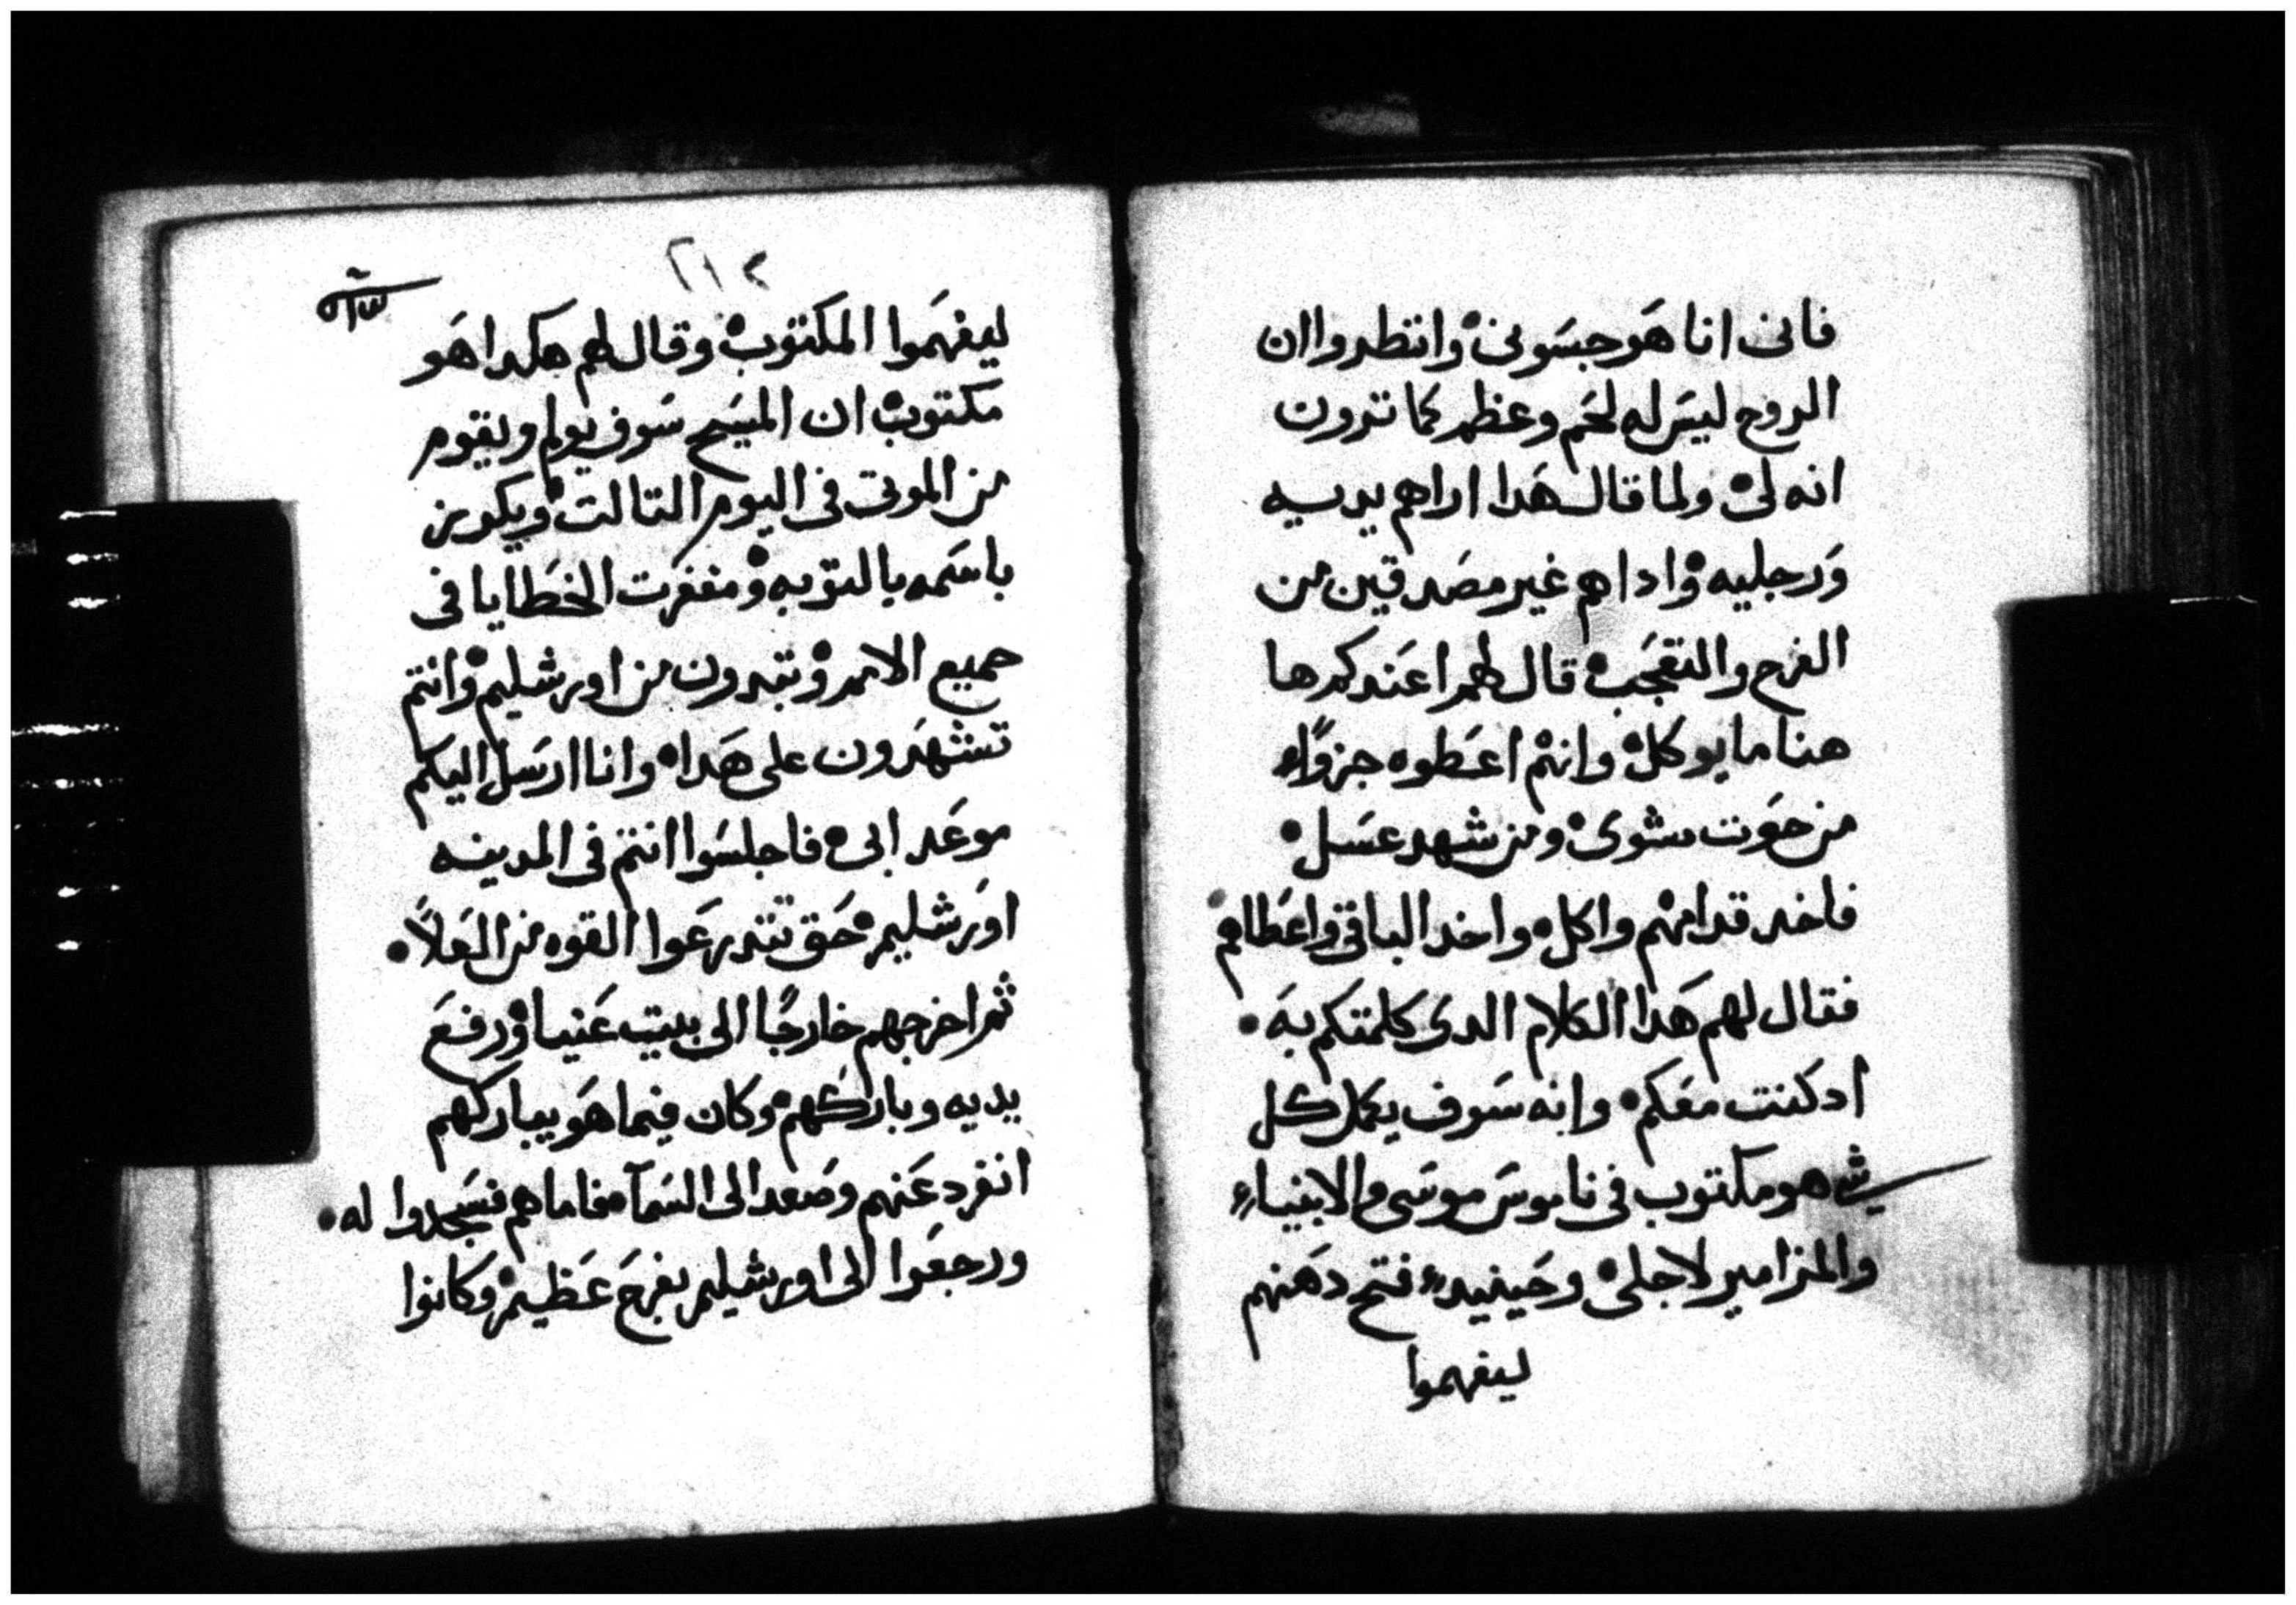 فانى انا هو جسونى وانتطروا ان
الروح ليس له لحم وعظم كما ترون
انه لى ولما قال هدا اراهم يديه
ورجليه واداهم غير مصدقين من
الفرح والتعجب قال لهم اعندكم ها
هنا ما يوكل وانتم اعطوه جزوًا
من حوت مشوى ومن شهد عسل
فاخد قدامهم واكل واخد الباقى واعطاهم
فقال لهم هدا الكلام الدى كلمتكم به
اد كنت معكم وانه سوف يكمل كل
شى هو مكتوب فى ناموس موسى والانبياء
والمزامير لاجلى وحينيد فتح دهنهم
ليفهموا
٢١٢
ليفهموا المكتوب وقال لهم هكدا هو
مكتوب ان المسيح سوف يولم ويقوم
من الموتى فى اليوم التالت ويكرزن
باسمه بالتوبه ومغفرت الخطايا فى
جميع الامم وتبدون من اورشليم وانتم
تشهدون على هدا وانا ارسل اليكم
موعد ابى فاجلسوا انتم فى المدينه
اورشليم حتى تتدرعوا القوه من العلاً
ثم اخرجهم خارجًا الى بيت عنيا ورفع
يديه وباركهم وكان فيما هو يباركهم
انفرد عنهم وصعد الى السمآ فاما هم فسجدوا له
ورجعوا الى اورشليم بفرح عظيم وكانوا